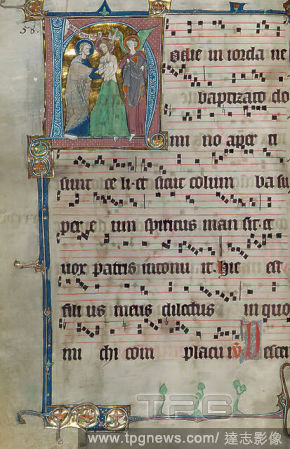 58.
odie in iorda ne
baptizato do
mi no aper ti
sunt ce li et sicut colum ba su
per e um spiritus man sit et
uox patris intonu it hic est
fili us meus dilectus in quo
mi chi com placu it Descen
TPG
www.tpgnews.com / 達志影像